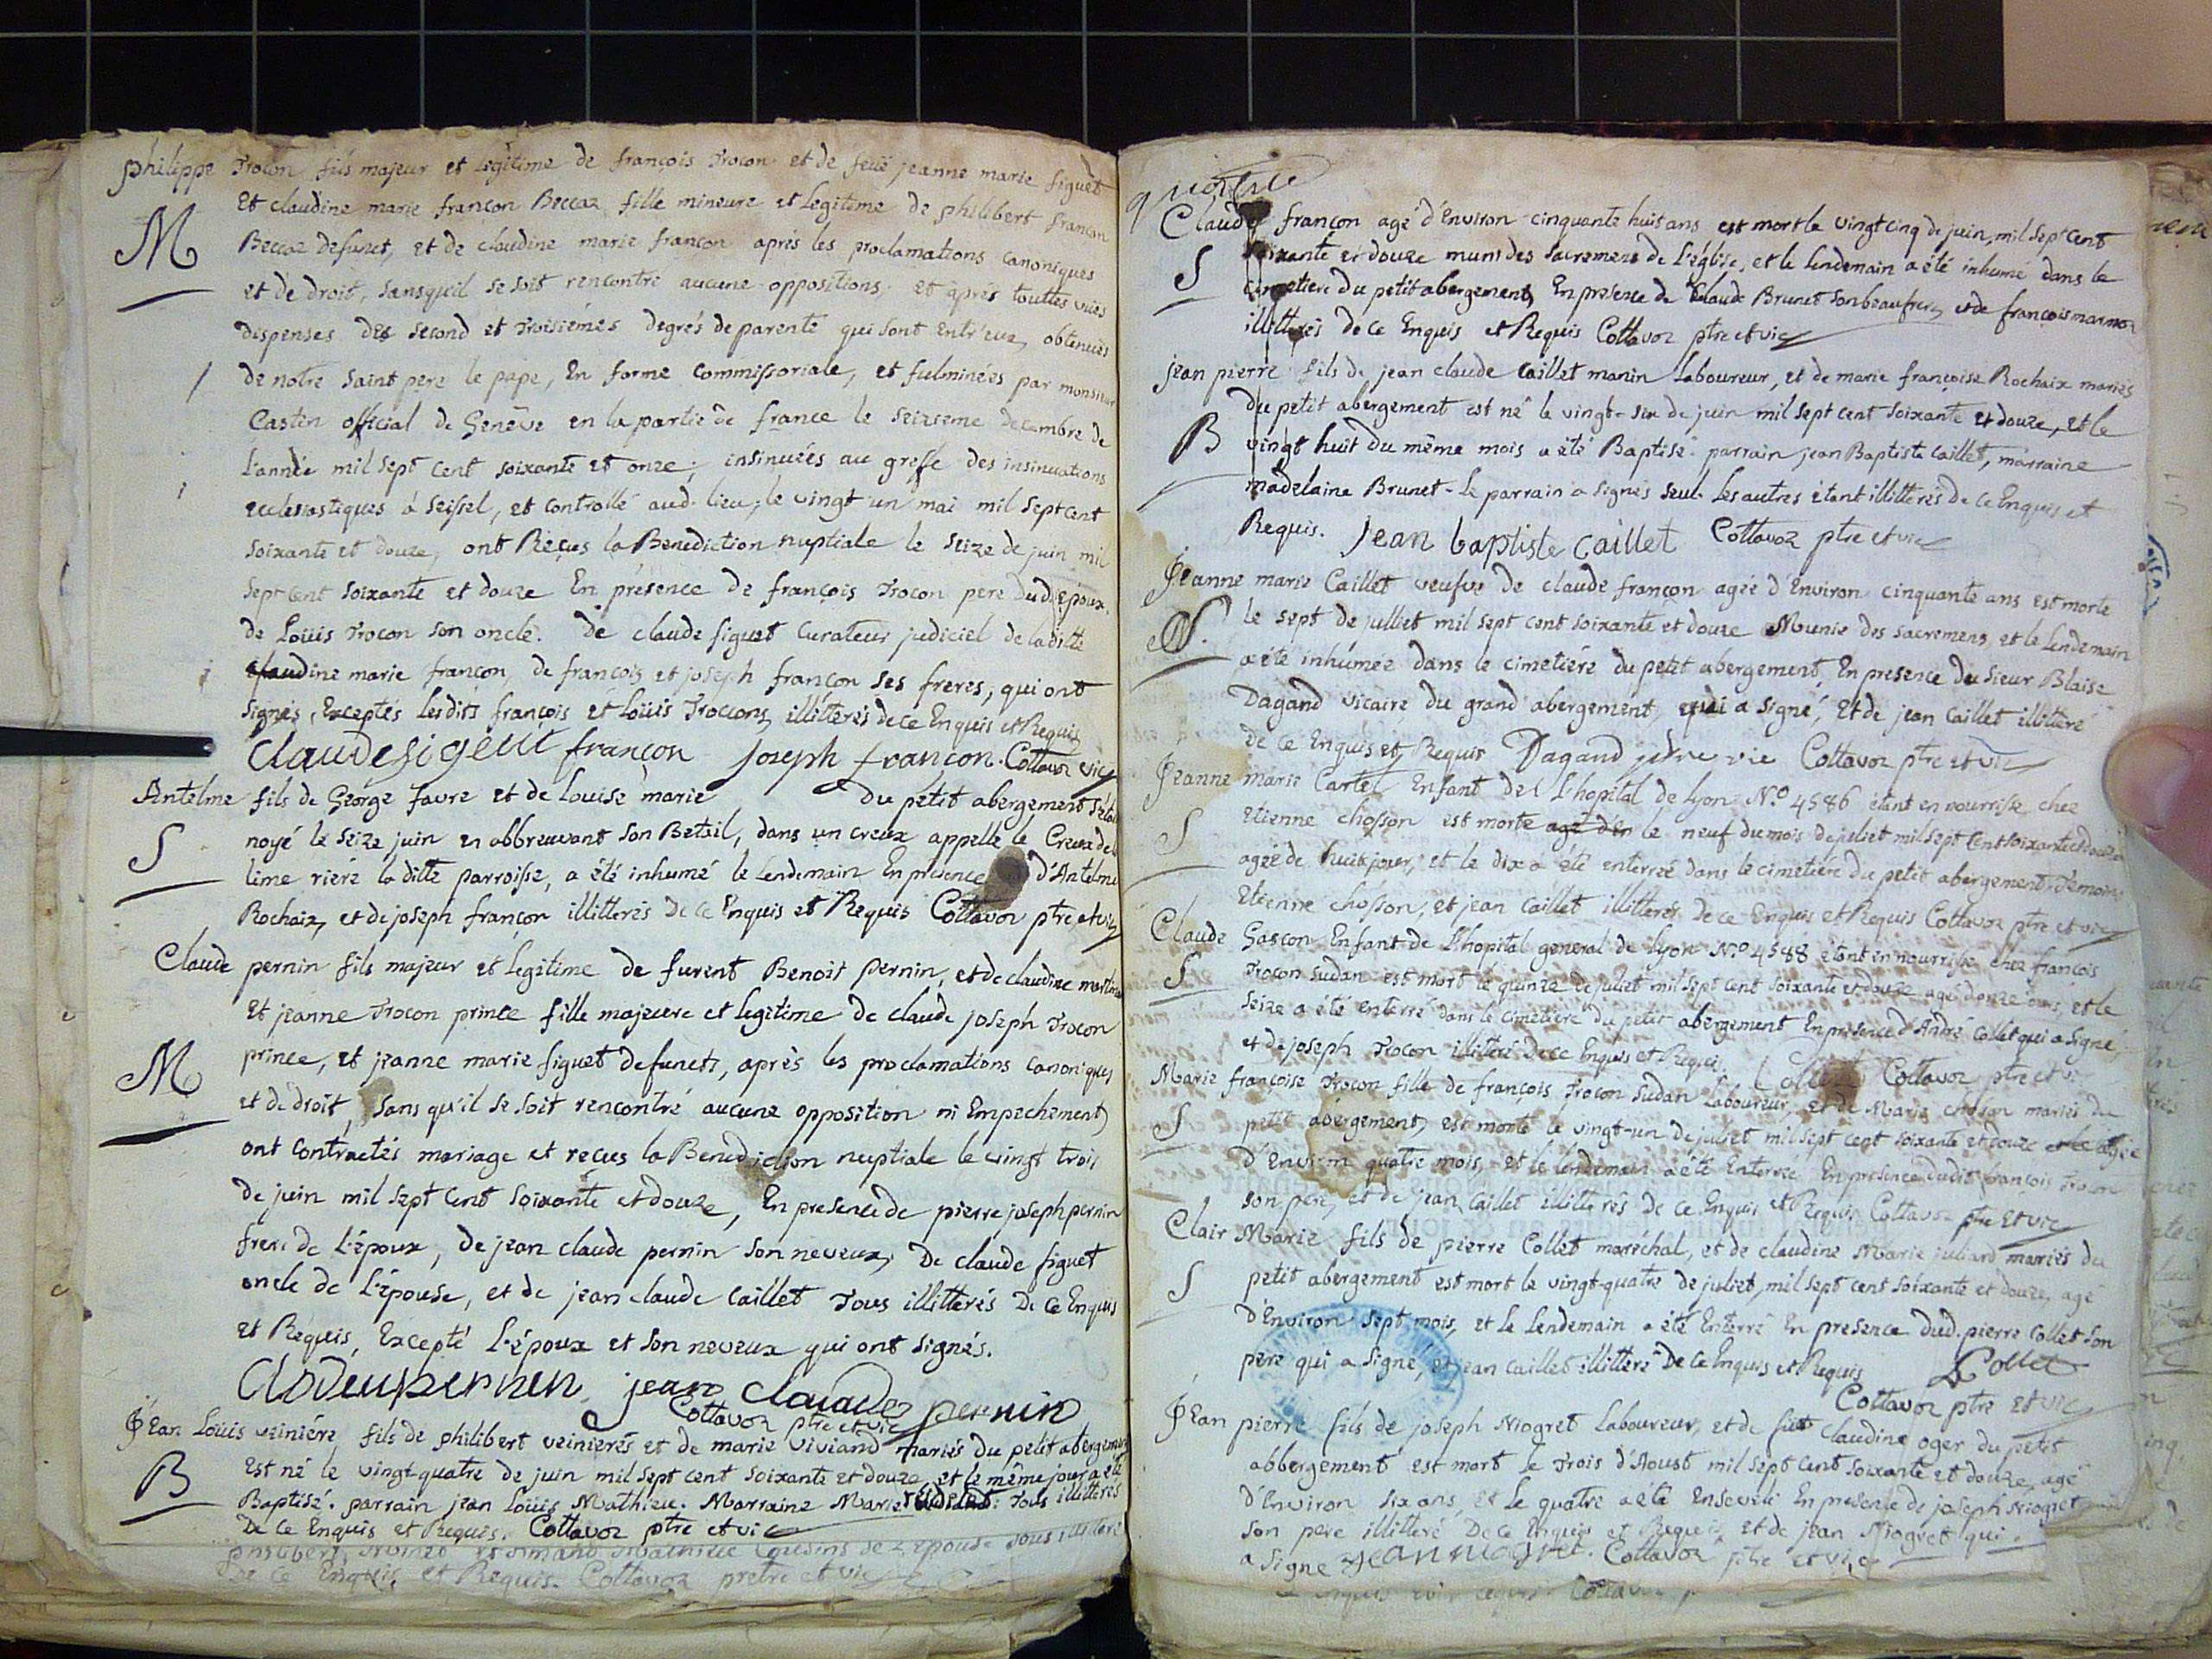 philippe Trocon fils majeur et legitime de françois Trocon et de feüe jeanne marie figuet
M
Et claudine marie françon Beccaz fille mineure et Legitime de philibert françon
Beccaz Defunct, et de claudine marie françon après les proclamations canoniques
et de droit, sansqu'il se soit rencontré aucune oppositions et après touttes
dispenses des second et troisiémes degrés de parenté qui sont Entr'eux, obtenues
de notre saint pere le pape, En forme commissoriale, et fulminées par monsieur
Castin official de Genêve en la partie de france le seizieme decembre de
l'année mil sept cent soixante et onze; insinuées au greffe des insinuations
ecclesiastiques à seissel, et controllé aud. lieu, le vingt un mai mil sept cent
soixante et douze, ont Reçus la Benediction nuptiale le seize de juin mil
sept cent soixante et douze En présence de françois Trocon pere dud. époux,
de Loüis Trocon son oncle. De claude figuet Curateur judiciel de laditte
claudine marie françon, de françois et joseph françon ses freres, qui ont
signés, Exceptés lesdits françois et Loüis Troccons, illitterés de ce Enquis et Requis
Claude figuet françon joseph francon. Cottavoz vic
Antelme fils de George favre et de Louise marie du petit abergement s'est
S
noyé le seize juin en abbreuvant son Betail, dans un creux appelle le Creux de
lime riere la ditte parroisse, a été inhumé le lendemain En presence d'Antelme
Rochaix, et de joseph françon illitterés De ce Enquis et Requis Cottavoz ptre et vic
Claude pernin fils majeur et Legitime de furent Benoit pernin, et de claudine
Et jeanne Trocon prince fille majeure et legitime de claude joseph Trocon
M
prince, et jeanne marie figuet defuncts, après les proclamations canoniques
et de droit, sans qu'il se soit rencontré aucune opposition ni Empechement
ont contractés mariage et recus la Benediction nuptiale le vingt trois
de juin mil sept cent soixante et douze, En presence de pierre joseph pernin
frere de L'époux, de jean claude pernin son neveux, De claude figuet
oncle de L'épouse, et de jean claude caillet Tous illitterés De ce Enquis
et Requis, Excepté L'époux et son neveux qui ont signés.
Clodeu pernin, jean Claude pernin
Cottavoz ptre et vic
Jean Loüis veiniére fils de philibert veinierés et de marie viviand mariés du petit abergement
B
est né le vingt-quatre de juin mil sept cent soixante et douze, et le même jour a été
Baptisé. parrain jean Loüis Mathieu. Marraine Marie Tous illitterés
De ce Enquis et Requis. Cottavoz ptre et vic
philibert et Mathieu Cousins de L'epouse Tous illitteré
De ce Enquis, et Requis. Cottavoz pretre et vic
quatre
Claude françon agé d'Environ cinquante huit ans est mort le vingt cinq de juin, mil sept cent
S
soixante et douze muni des sacremens de L'église, et le lendemain a été inhumé dans le
cimetiere du petit abergement, En presence de Claude Brunet son beaufrere, et de françois
illitterés de ce Enquis et Requis Cottavoz ptre et vic
jean pierre fils de jean claude Caillet manin Laboureur, et de marie françoise Rochaix mariés
du petit abergement est né le vingt-six de juin mil sept cent soixante et douze, et le
B
vingt huit du même mois a été Baptisé. parrain jean Baptiste caillet, marraine
madelaine Brunet. Le parrain a signés seul. Les autres étant illitterés de ce Enquis et
Requis. Jean baptiste Caillet Cottavoz ptre et vic
Jeanne marie Caillet veufve de claude françon ageé d'Environ cinquante ans est morte
le sept de julliet mil sept cent soixante et douze Munie des sacremens, et le Lendemain
a été inhúmée dans le cimetiére du petit abergement, En presence du sieur Blaise
Dagand vicaire du grand abergement, qui a signé, Et de jean caillet illitteré
de ce Enquis et Requis Dagand ptre vic Cottavoz ptre et vic
Jeanne marie Cartel Enfant de L'hopital de Lyon N.º 4586 étant en nourrisse chez
S
etienne chosson est morte agé d'En le neuf du mois de juliet mil sept cent soixante et douze
ageé de huit jour, et le dix a été enterreé dans le cimetiére du petit abergement. Temoins
Etienne chosson, et jean caillet illitterés de ce Enquis et Requis Cottavoz ptre et vic
Claude Gascon Enfant de L'hopital general de Lyon N.º 4588 étant en nourrisse chez françois
S
Trocon sudan est mort le quinze de juliet mil sept cent soixante et douze agé et le
seize a été enterré dans le cimetiére du petit abergement En presence d'André Collet qui a signé
et de joseph Trocon illitteré de ce Enquis et Requis. Collet Cottavoz ptre et vic
Marie françoise Trocon fille de françois Trocon sudan Laboureur, et de Marie chosson mariés du
S
petit abergement, est morte le vingt-un de juliet mil sept cent soixante et douze agée
d'Environ quatre mois, et le lendemain a été Enterrée En presence dudit françois Trocon
son pere, et de jean Caillet illitterés de ce Enquis et Requis Cottavoz ptre et vic
Clair Marie fils de pierre Collet maréchal, et de claudine Marie juliard mariés du
S
petit abergement est mort le vingt-quatre de juliet, mil sept cent soixante et douze, agé
d'Environ sept mois, et le Lendemain a été Enterré En presence dud. pierre Collet son
pere qui a signé, et jean caillet illitteré De ce Enquis et Requis Collet
Cottavoz ptre et vic
Jean pierre fils de joseph Niogret Laboureur, et de fut Claudine oger du petit
abbergement est mort le Trois d'Aoust mil sept cent soixante et douze, agé
d'Environ six ans, et Le quatre a été Enseveli En presence de joseph Niogret
son pere illitteré De ce Enquis et Requis, et de jean Niogret qui
a signe jean niogret. Cottavoz ptre et vic